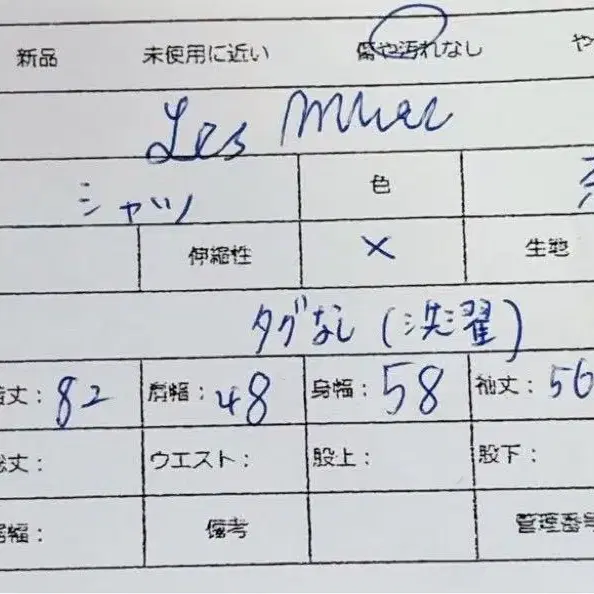 新品 未使用に近い 傷や汚れなし や
Les
シャツ 色
伸縮性 × 生地
タグなし(洗濯)
着丈: 82 肩幅: 48 身幅: 58 袖丈: 56
総丈: ウエスト: 股上: 股下:
裾幅: 備考 管理番号